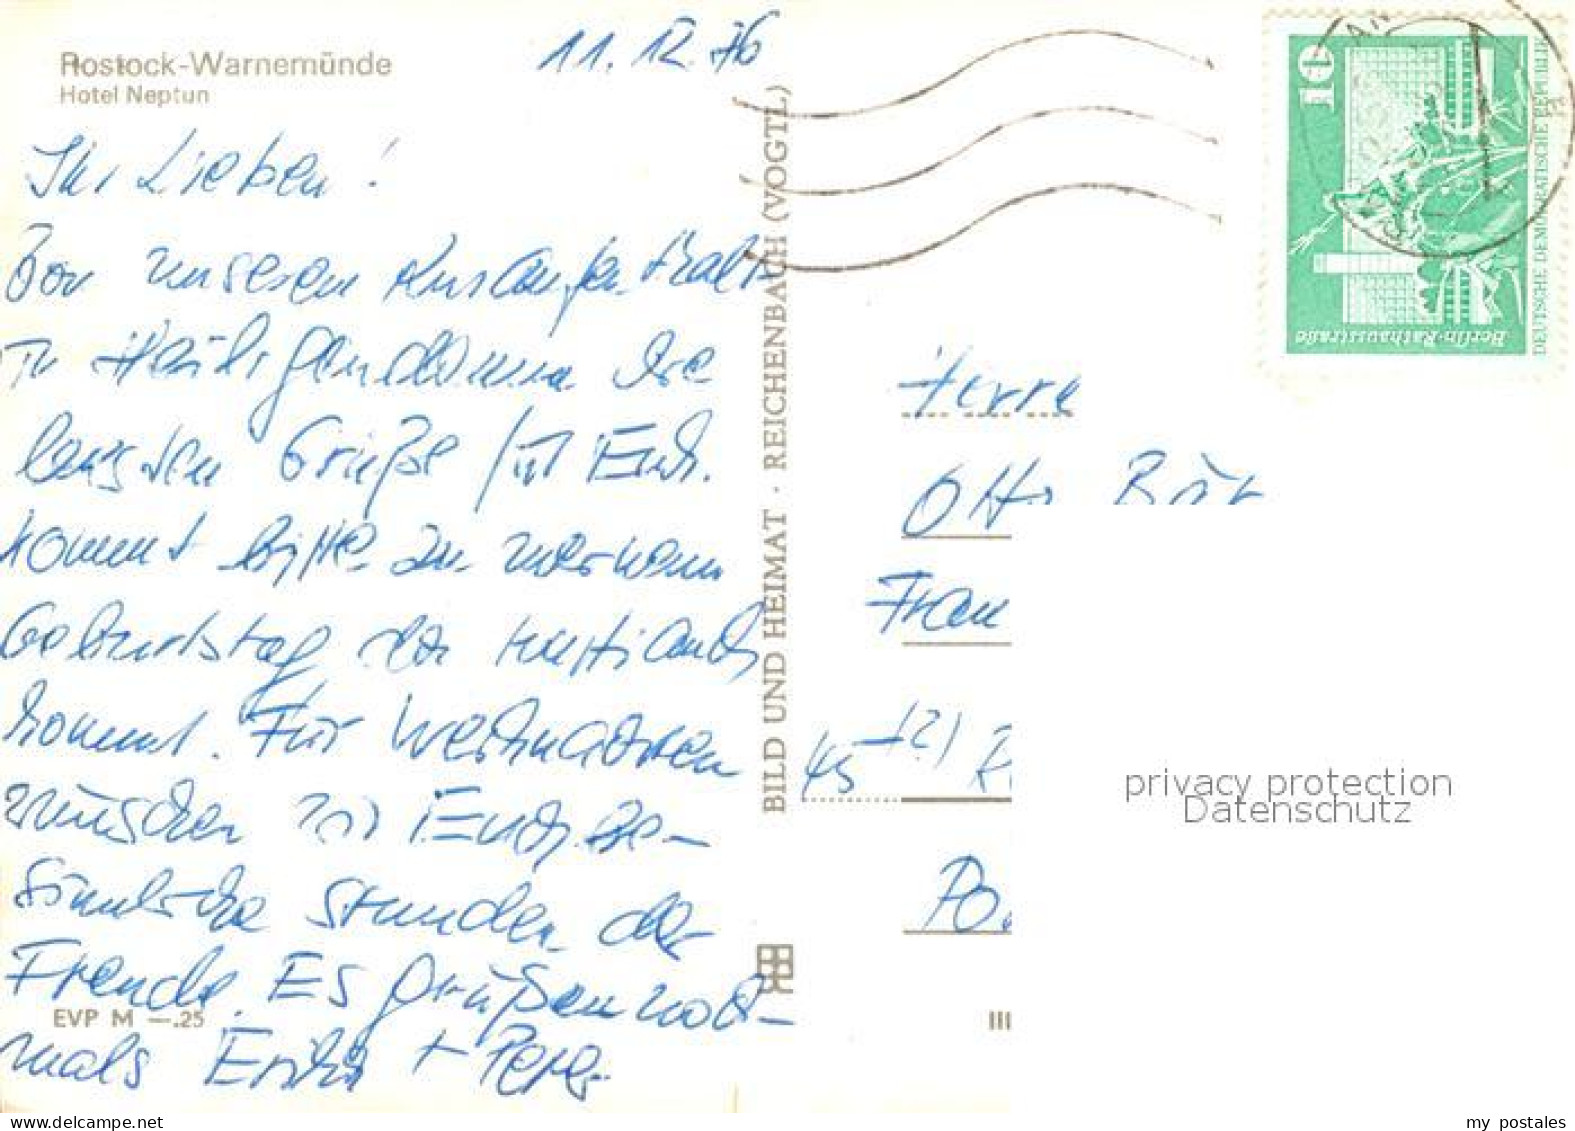 Rostock-Warnemünde
Hotel Neptun
11. 12. 76
Ihr Lieben!
Von unseren Kuraufenthalt
in Heiligendamm die
besten Grüße
kommt bitte zu meinem
Geburtstag
kommt. Für Weihnachten
wünschen wir Euch be-
sinnliche Stunden der
Freude. Es grüßen noch-
mals Erika + Peter
EVP M —.25
BILD UND HEIMAT · REICHENBACH (VOGTL)
10
Berlin-Rathausstraße
DEUTSCHE DEMOKRATISCHE REPUBLIK
Herrn
Otto
Frau
45
III
privacy protection
Datenschutz
my postales